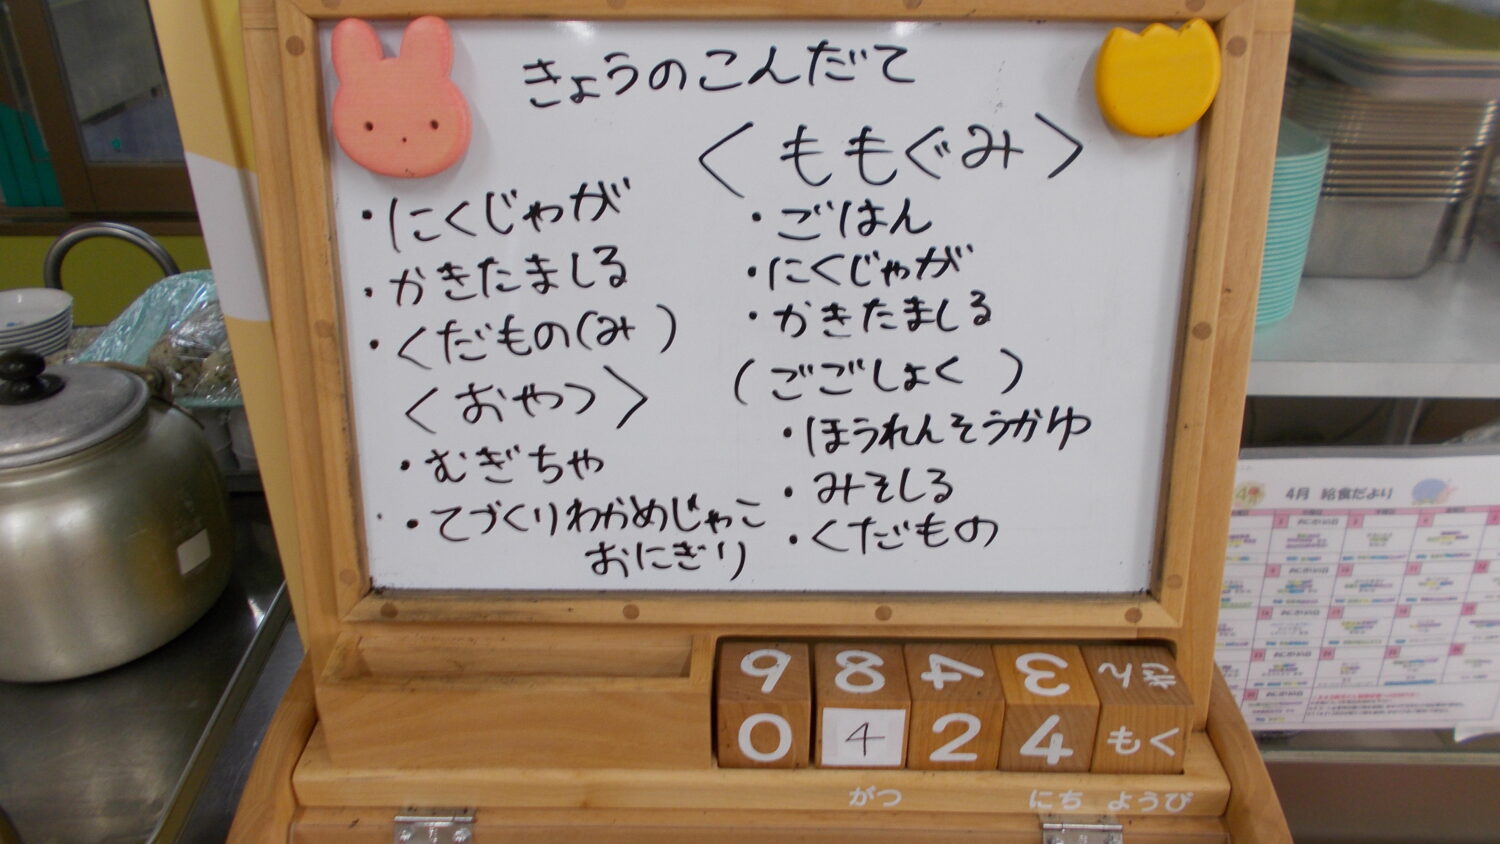 きょうのこんだて
・にくじゃが
・かきたましる
・くだもの(み )
〈おやつ〉
・むぎちゃ
・てづくりわかめじゃこ
おにぎり
〈ももぐみ〉
・ごはん
・にくじゃが
・かきたましる
(ごごしょく )
・ほうれんそうかゆ
・みそしる
・くだもの
9 8 4 3 きん
0 4 2 4 もく
がつ にち ようび
4月 給食だより